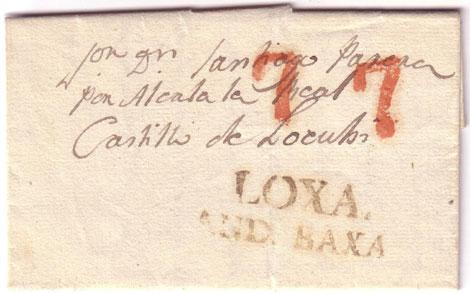 Sor Dn Santiago Parera
por Alcala la Real
7 7
Castillo de Locubi
LOXA.
AND. BAXA